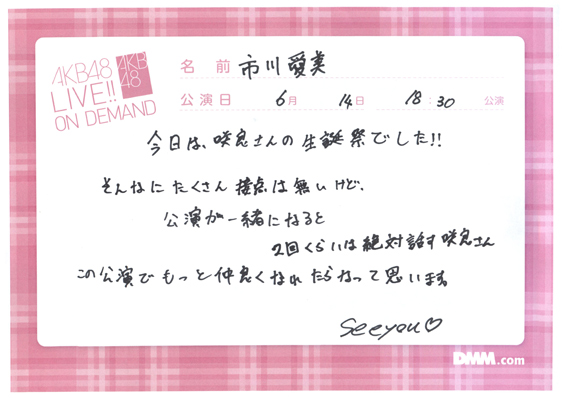 AKB48
LIVE!!
ON DEMAND
AKB
48
名 前 市川愛美
公演日 6月 14日 18:30 公演
今日は、咲良さんの生誕祭でした!!
そんなにたくさん接点は無いけど、
公演が一緒になると
2回くらいは絶対話す咲良さん
この公演でもっと仲良くなれたらなって思います。
See you♡
DMM.com